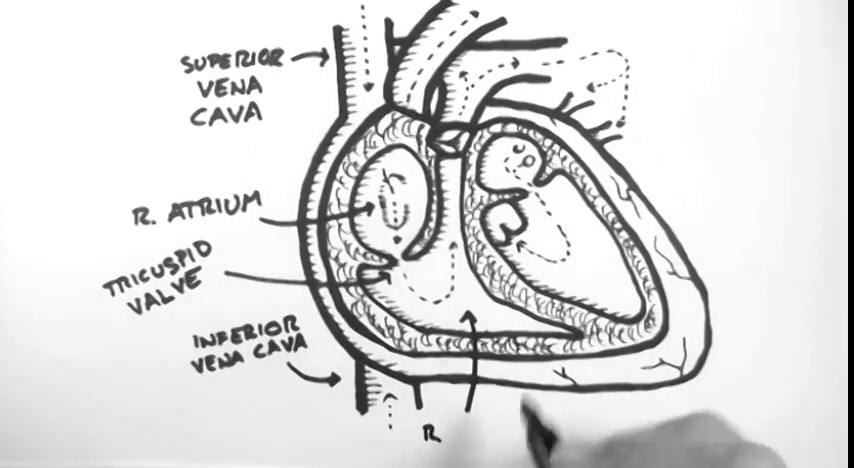 SUPERIOR
VENA
CAVA
R. ATRIUM
TRICUSPID
VALVE
INFERIOR
VENA CAVA
R